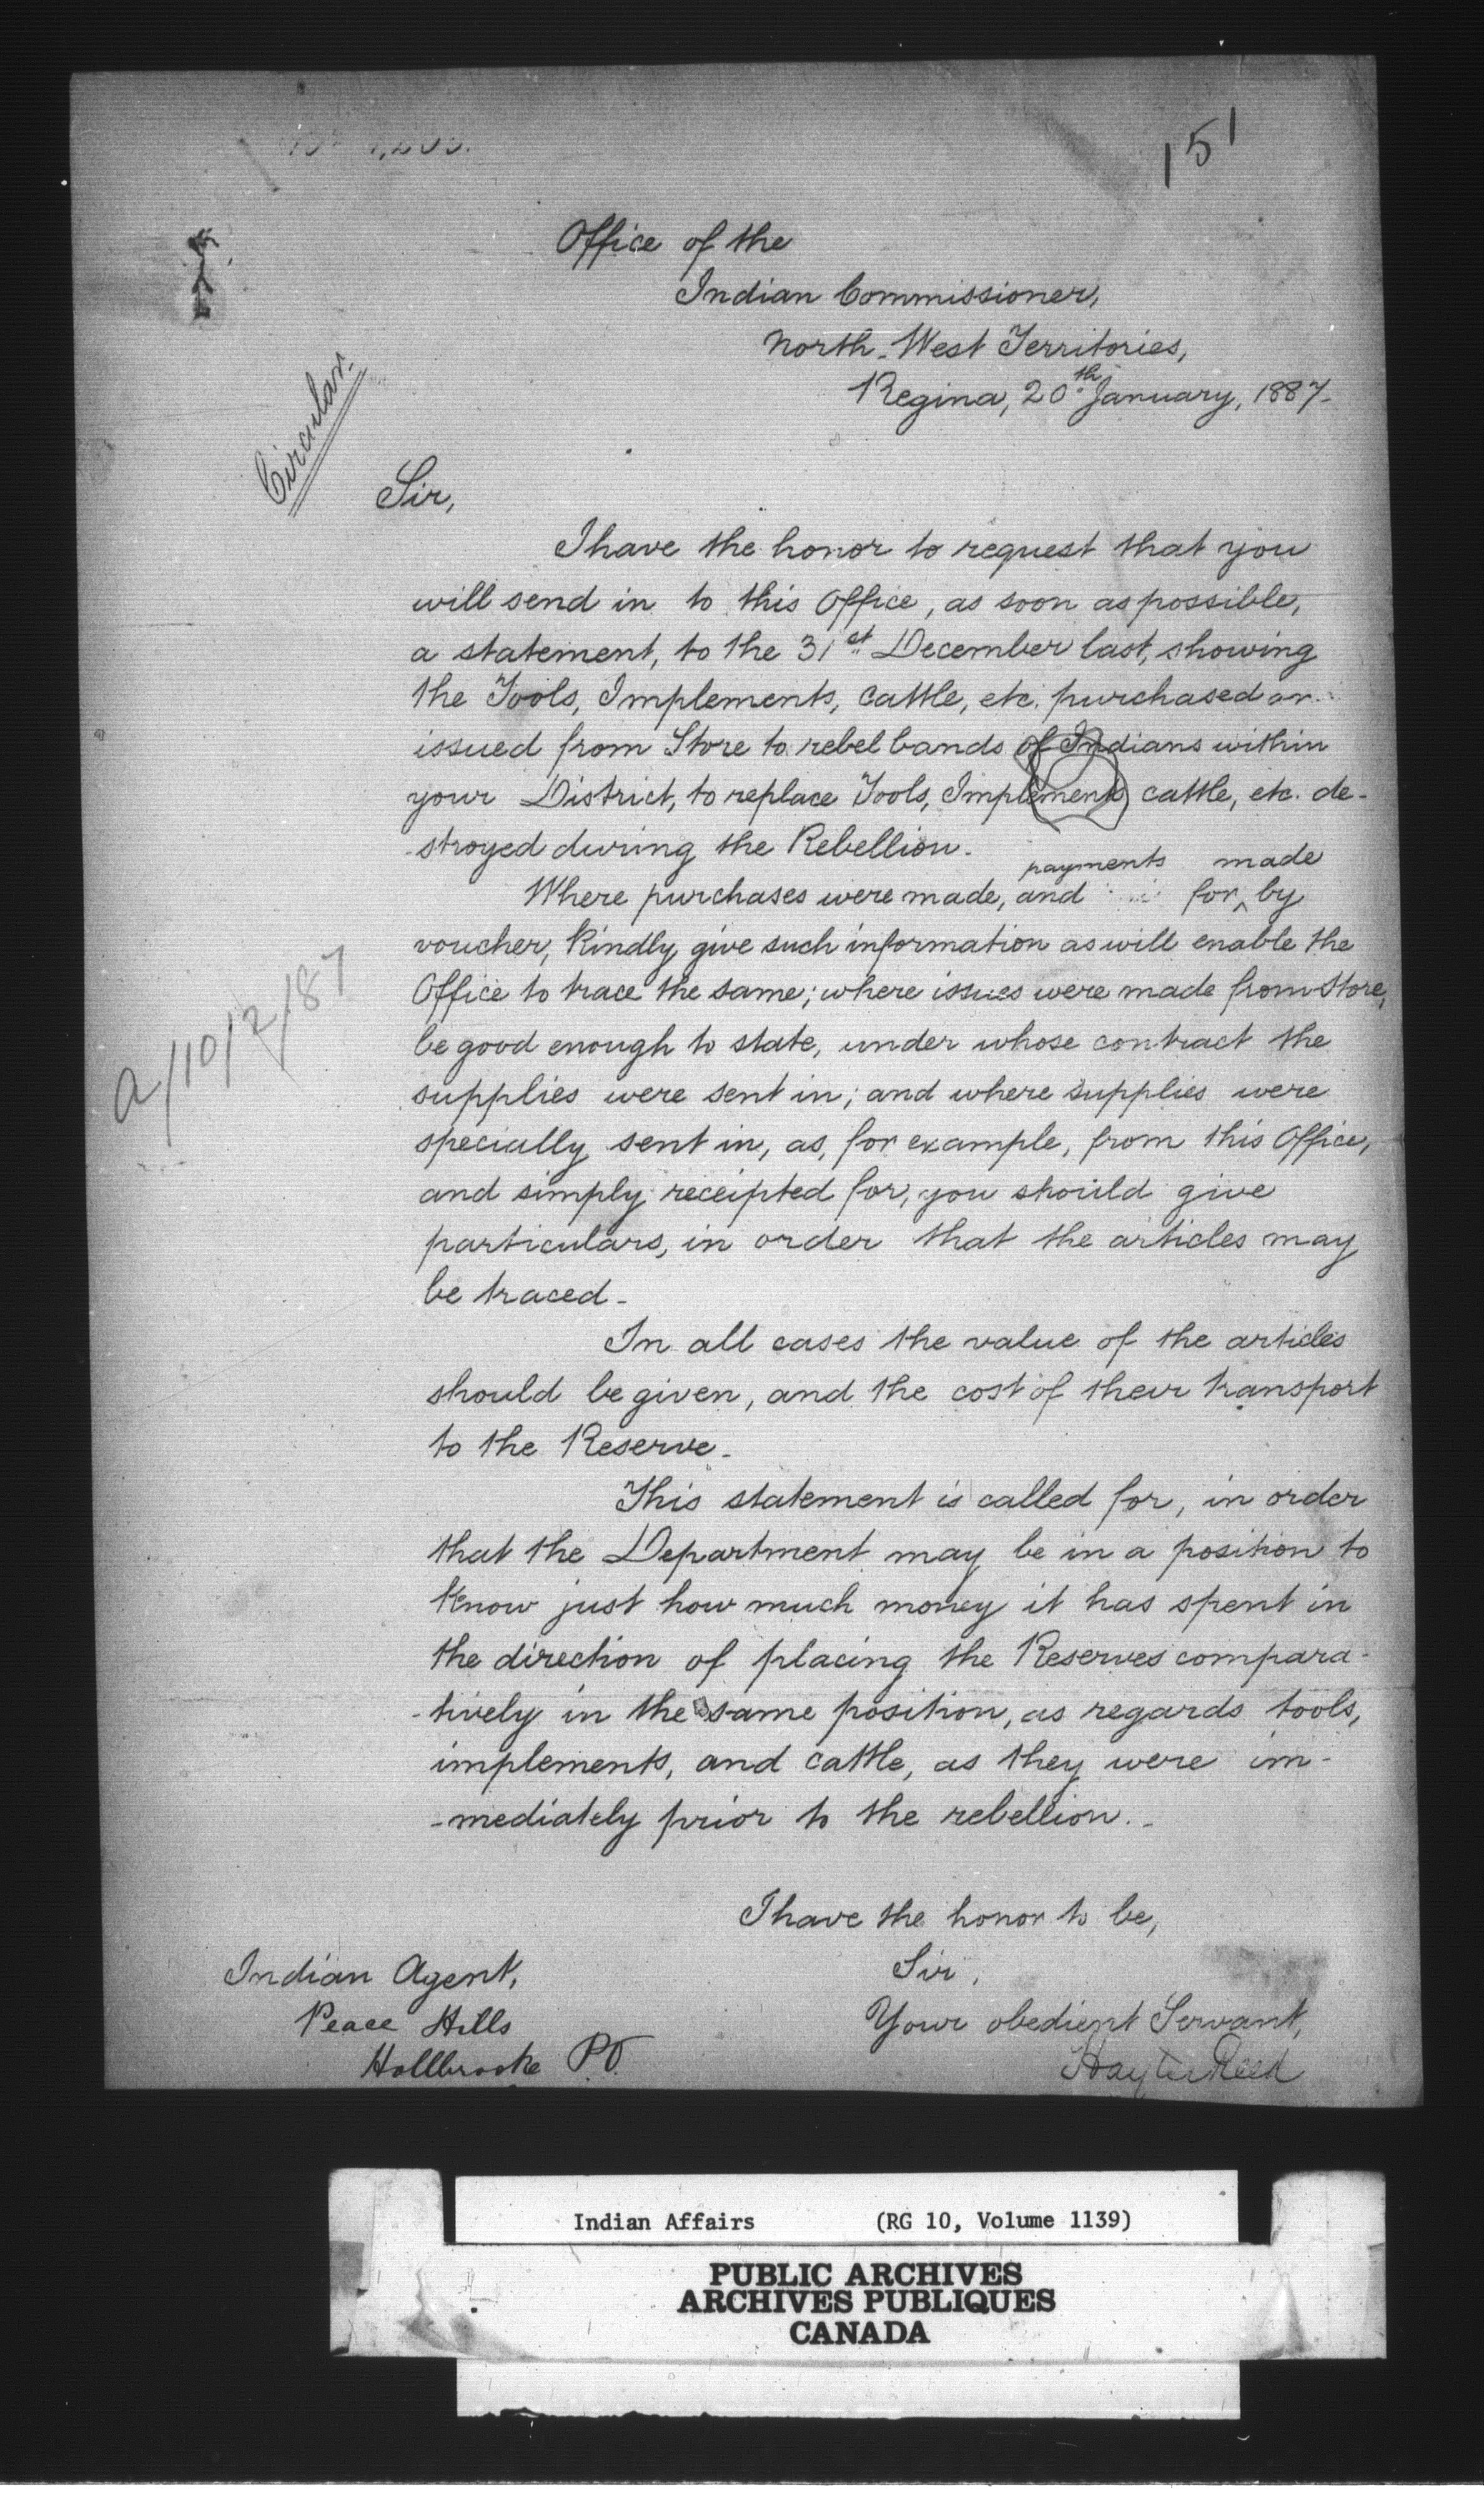 151
Office of the
Indian Commissioner,
North-West Territories,
Regina, 20th January, 1887-
Circular.
Sir,
I have the honor to request that you
will send in to this Office, as soon as possible,
a statement, to the 31st December last, showing
the Tools, Implements, Cattle, etc. purchased or
issued from Store to rebel bands of Indians within
your District, to replace Tools, Implements cattle, etc. de-
-stroyed during the Rebellion.
payments made
Where purchases were made, and for by
voucher, Kindly give such information as will enable the
Office to trace the same; where issues were made from Store,
be good enough to state, under whose contract the
supplies were sent in; and where supplies were
specially sent in, as, for example, from this Office,
and simply receipted for, you should give
particulars, in order that the articles may
be traced-
a/10/2/87
In all cases the value of the articles
should be given, and the cost of their transport
to the Reserve-
This statement is called for, in order
that the Department may be in a position to
Know just how much money it has spent in
the direction of placing the Reserves compara-
-tively in the same position, as regards tools,
implements, and cattle, as they were im-
-mediately prior to the rebellion.-
I have the honor to be,
Sir,
Your obedient Servant,
Hayter Reed
Indian Agent,
Peace Hills
Hollbrooke P.O.
Indian Affairs (RG 10, Volume 1139)
PUBLIC ARCHIVES
ARCHIVES PUBLIQUES
CANADA